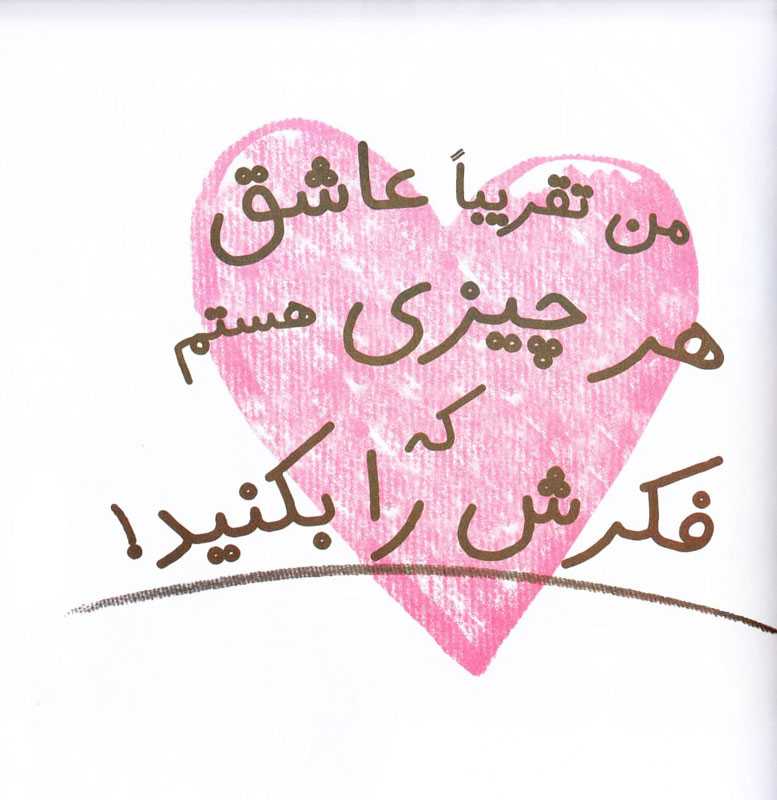 من تقریباً عاشق
هر چیزی هستم
که
فکرش را بکنید!